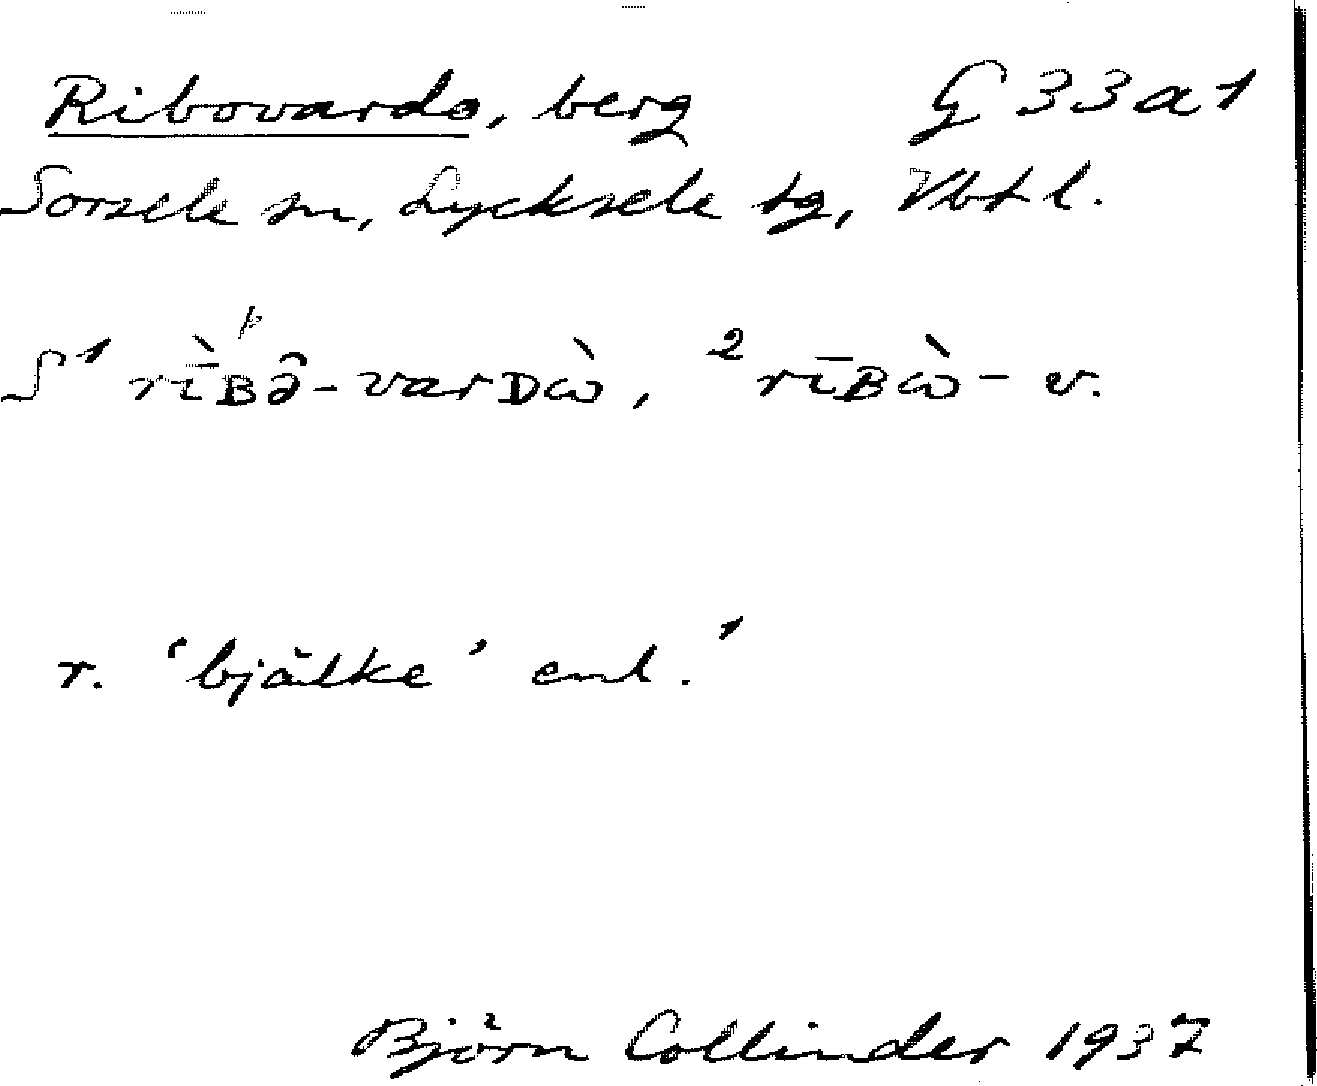 Ribovardo, berg G 33a1
Sorsele sn, Lycksele tg, Vbtl.
ʃ ¹ rī̀ʙə̂-varᴅὼ, ² rīʙὼ- v.
r. 'bjälke' enl. ¹
Björn Collinder 1937